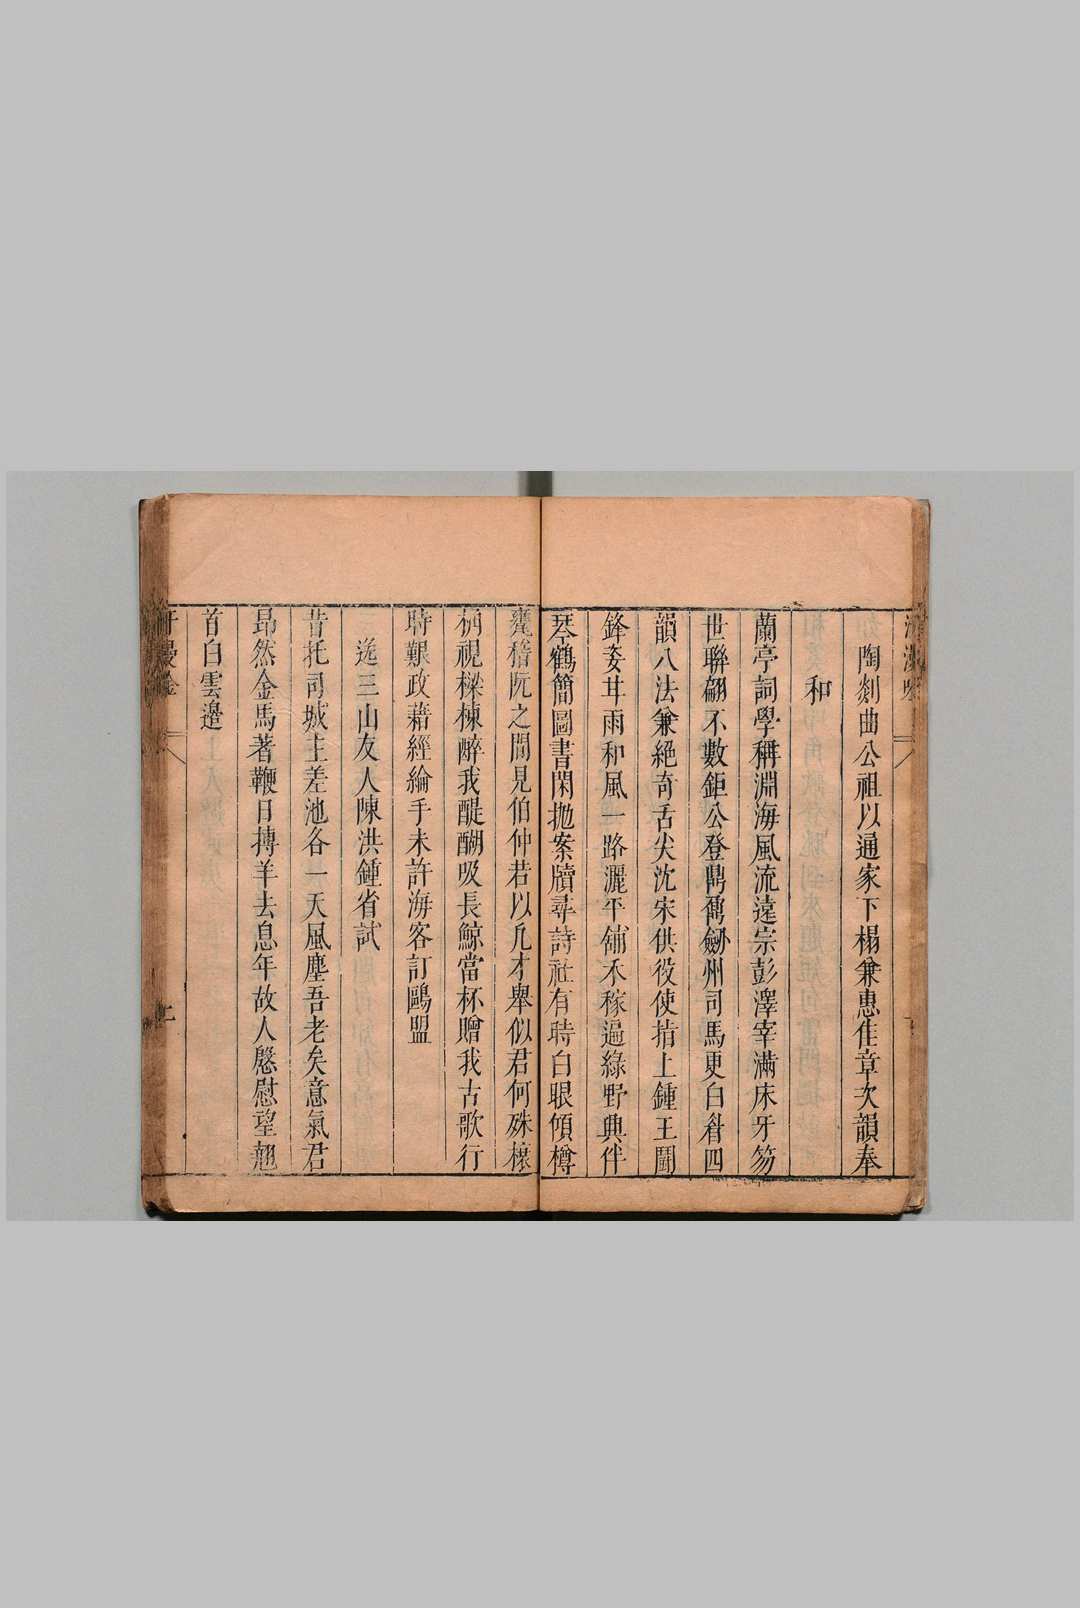 陶剡曲公祖以通家下榻兼惠佳章次韻奉
和
蘭亭詞學稱淵海風流遠宗彭澤宰滿床牙笏
世聯翩不數鉅公登鼎鼐劒州司馬更白眉四
韻八法兼絕奇舌尖沈宋供役使指上鍾王鬪
鋒姿甘雨和風一路灑平鋪禾稼遍綠野興伴
琴鶴簡圖書閑抛案牘尋詩社有時白眼傾樽
嵇阮之間見伯仲若以凡才舉似君何殊榱
桷視樑棟醉我醍醐吸長鯨當杯贈我古歌行
時艱政藉經綸手未許海客訂鷗盟
送三山友人陳洪鍾省試
昔托司城主差池各一天風塵吾老矣意氣君
昂然金馬著鞭日摶羊去息年故人慇慰望翹
首白雲邊
上